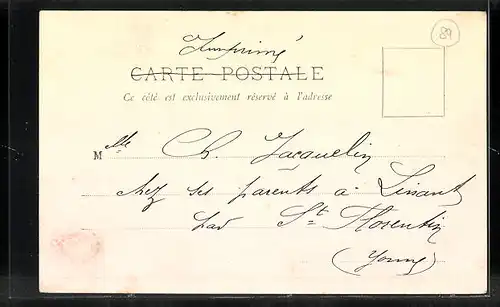 Imprimé
CARTE POSTALE
Ce côté est exclusivement réservé à l'adresse
89
Mlle Ch. Jacquelin
chez ses parents à
par St Florentin
(Yonne)